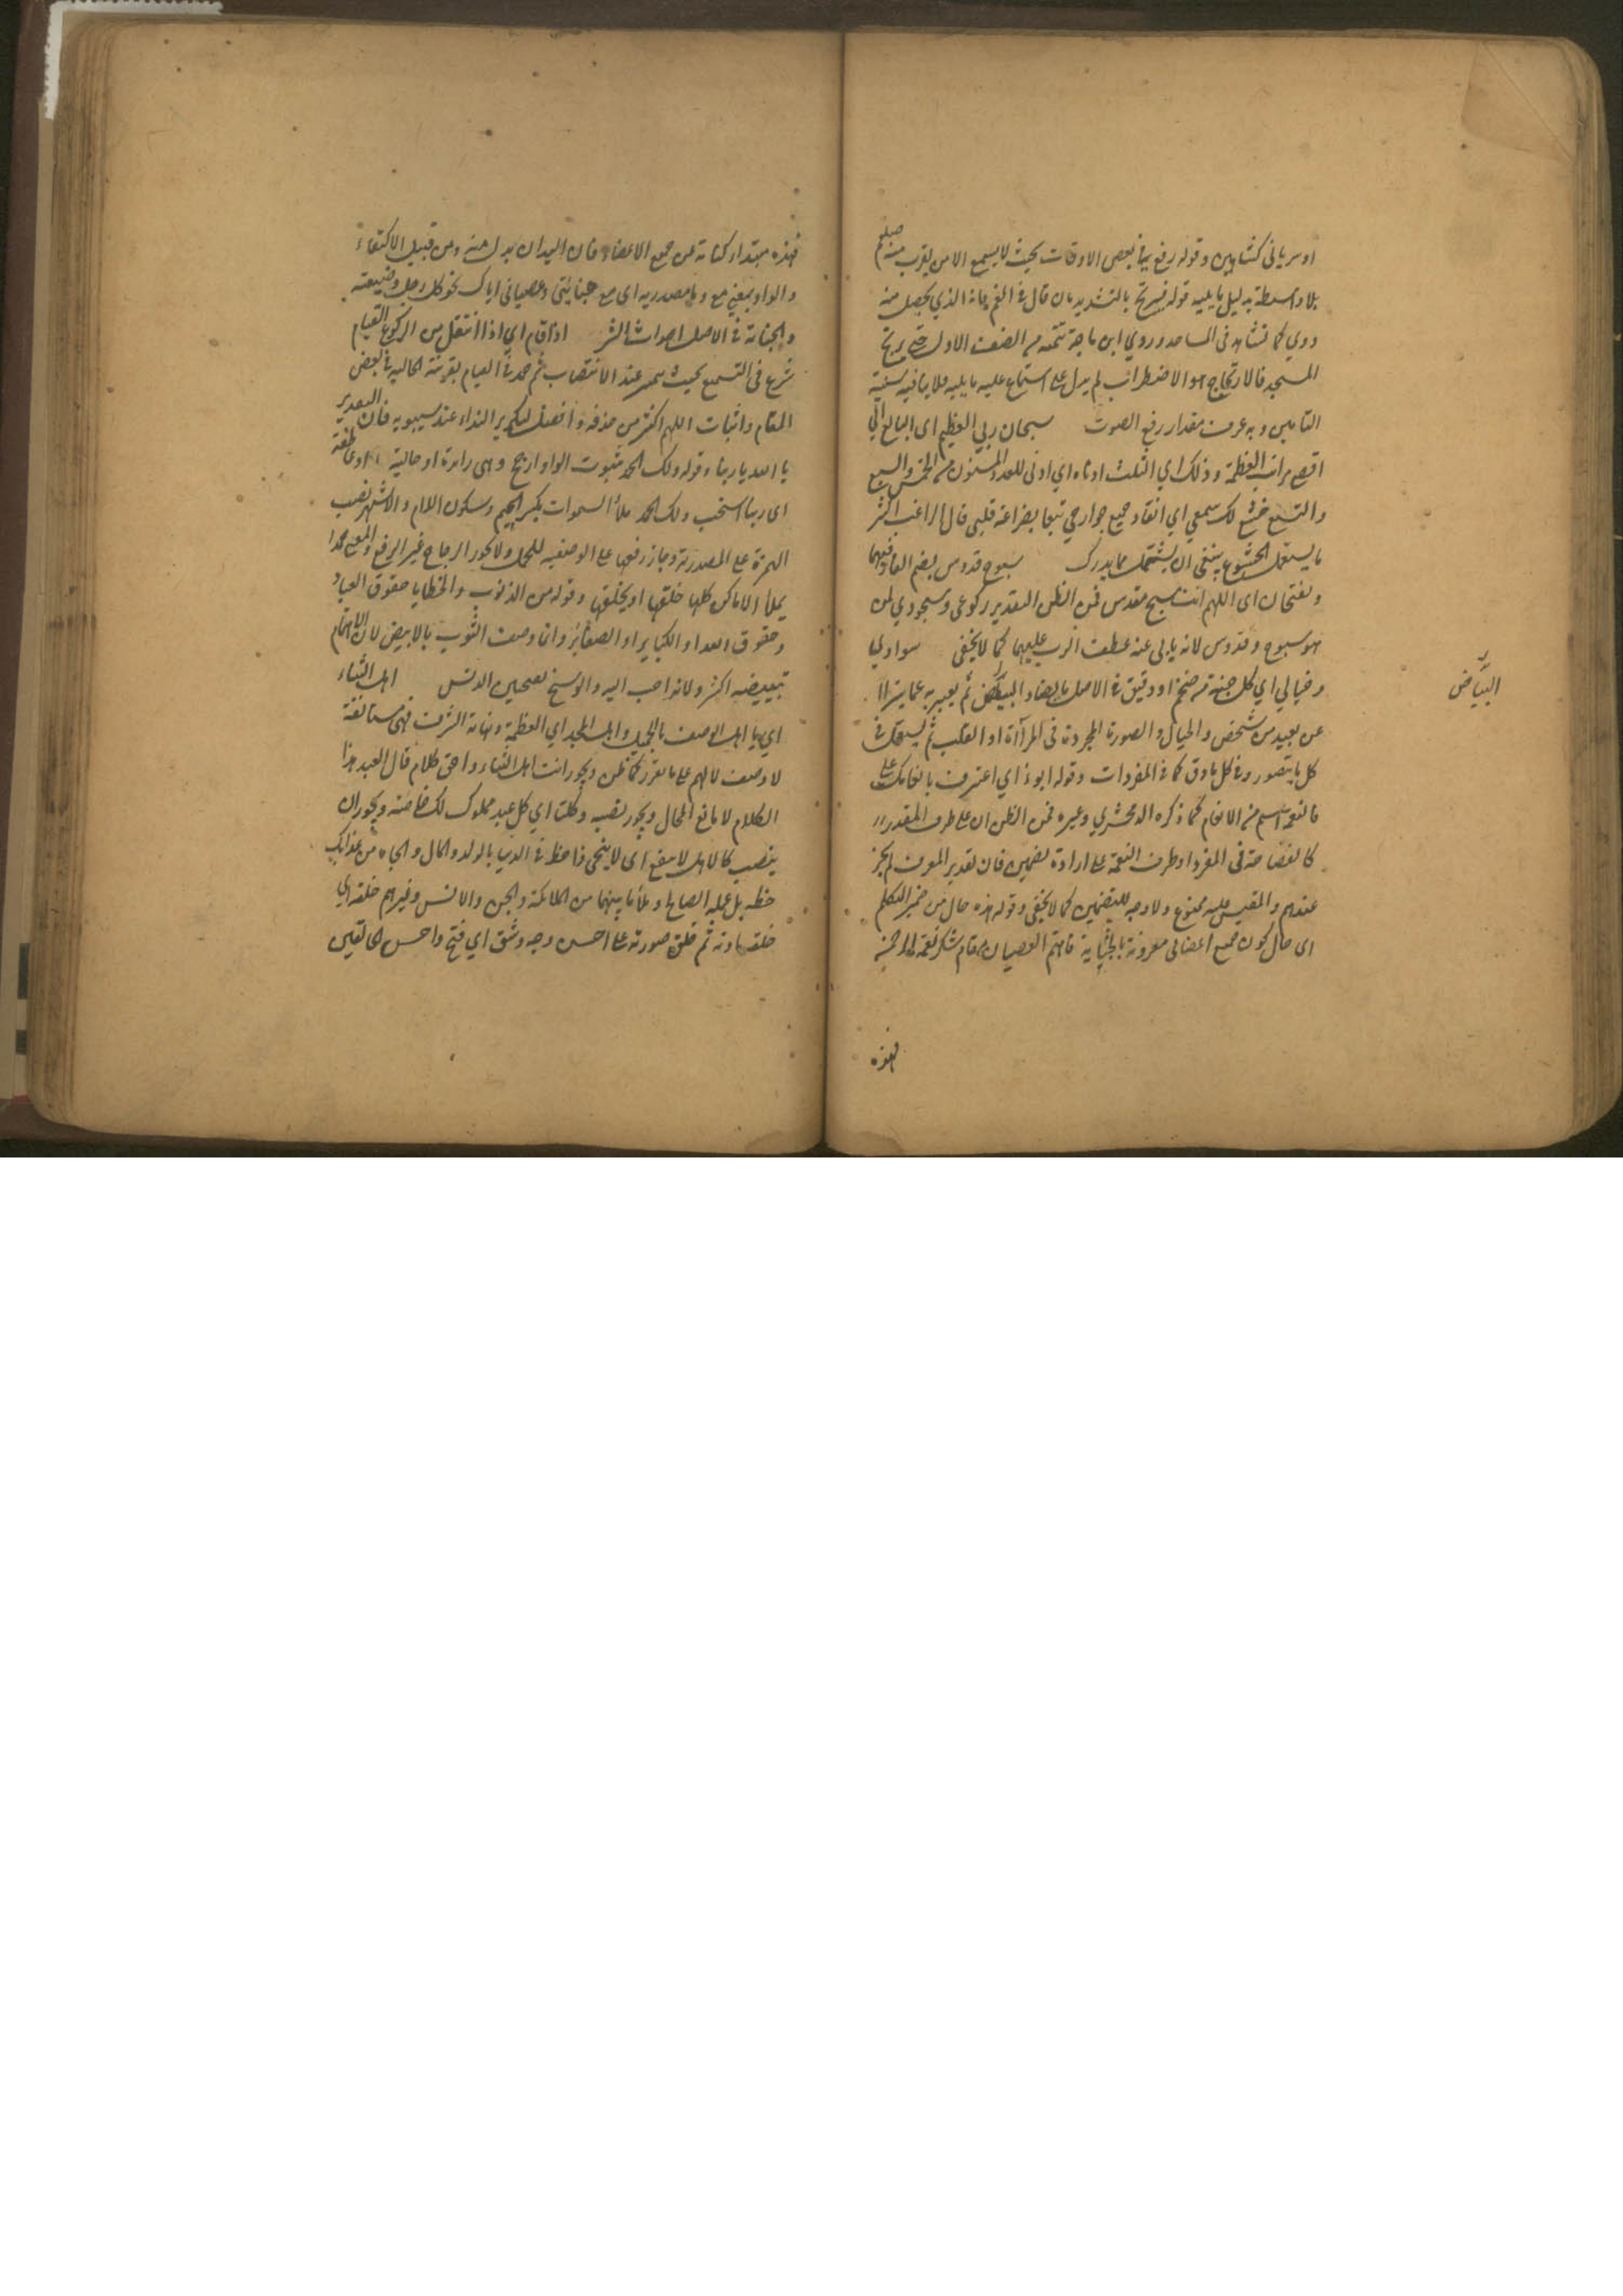 او سرياني كشاهين وقوله رفع بها بعض الاوقات بحيث لا يسمع الا من يقرب منه صلعم
بلا واسطة بدليل ما يليه قوله فيرتج بالتشديد بان قال في المغرب الذي يحصل منه
دوي كما تشاهد في المساجد وروي ابن ماجة تتمته من الصف الاول حتى يرتج
المسجد فالارتجاج هو الاضطراب لم يدل على استماع عليه ما يليه فلا ينافيه سنية
التامين وبه عرف مقدار رفع الصوت سبحان ربي العظيم اى البالغ الي
اقصى مراتب العظمة وذلك اي الثلث ادناه اي ادنى للعدد المسنون من الخمس والسبع
والتسع خشع لك سمعي اي انقاد جميع جوارحي تبعا بضراعة قلبي قال الراغب اكثر
ما يستعمل الخشوع ينبغي ان يشتمل مما يدرك سبوح قدوس بضم الفاء فيهما
وبفتحان اى اللهم انت مسبح مقدس فمن الظن التقدير ركوعي وسجودي لمن
هو سبوح وقدوس لانه يابى عنه عطف الرب عليهما كما لا يخفى سوادي
وخيالي اي كل جثة من ضخم او دقيق في الاصل بالضاد البياض ثم يعبر به عما يترا
البياض
عن بعيد من شخص والخيال والصورة المجردة في المرآة او القلب ثم يستعمل في
كل ما يتصور وفي كل ما دق كما في المفردات وقوله ابوء اي اعترف بانعامك على
فالنعمة اسم من الانعام كما ذكره الزمخشري وغيره فمن الظن ان على طرف المقدر
كالفضاحة في المفرد او ظرف النعمة على ارادة تضمين فان تقدير المعرف لم يجز
عندهم والمقيس عليه ممنوع ولا وجه للتضمين كما لا يخفى وقوله هذه حال من ضمير المتكلم
اى حال كون جميع اعضائى مقرونة بالجناية فاهتم العصيان مقام شكر نعمة
فهذه
فهذه مبتدا وكناية عن جميع الاعضاء فان اليدان بدل منه ومن قبيل الاكتفاء
والواو بمعنى مع وما مصدريه اى مع جنايتى وعصياني اياك نحو كل رجل وضيعته
والجناية في الاصل احداث الشر اذا قام اي اذا انتقل من الركوع القيام
شرع في التسميع بحيث يتم عند الانتصاب ثم حمد في القيام بقرينة الحاليه في بعض
المقام واثبات اللهم اكثر من حذفه وافضل لتكرير النداء عند سيبويه فان التقدير
يا الله يا ربنا وقوله ولك الحمد بثبوت الواو ارجح وهى زائدة او حالية او عاطفة
اى ربنا استجب ولك الحمد ملأ السموات بكسر الميم وسكون اللام والاشهر نصب
الهمزة على المصدرية وجاز رفعها على الوصفيه للحمد ولا يجوز الزجاج غير الرفع والمعنى حمدا
يملأ الاماكن كلها خلقها او يخلقها وقوله من الذنوب والخطايا حقوق العباد
وحقوق الله او الكباير او الصغائر وانما وصف الثوب بالابيض لان الاهتمام
تبييضه اكثر ولانه احب اليه والوسخ بفتحين الدنس اهل الثناء
اي يا اهل الوصف بالجميل واهل المجد اي العظمة ونهاية الشرف فهى مستأنفة
لا وصف لالهم على ما تقرر كما ظن ويجوز انت اهل الثناء واحق كلام قال العبد هذا
الكلام لا مانع الحال ويجوز نصبه وكلنا اي كل عبد مملوك لك خاصة ويجوز ان
ينصب كالاهل لا ينفع اى لا ينجى ذا حظ في الدنيا بالولد والمال والجاه من عذابك
حظه بل عمله الصالح وملأ ما بينهما من الملائكة والجن والانس وغيرهم خلقه اي
خلقه مادته ثم خلق صورته على احسن وجه وشق اي فتح واحسن الخالقين